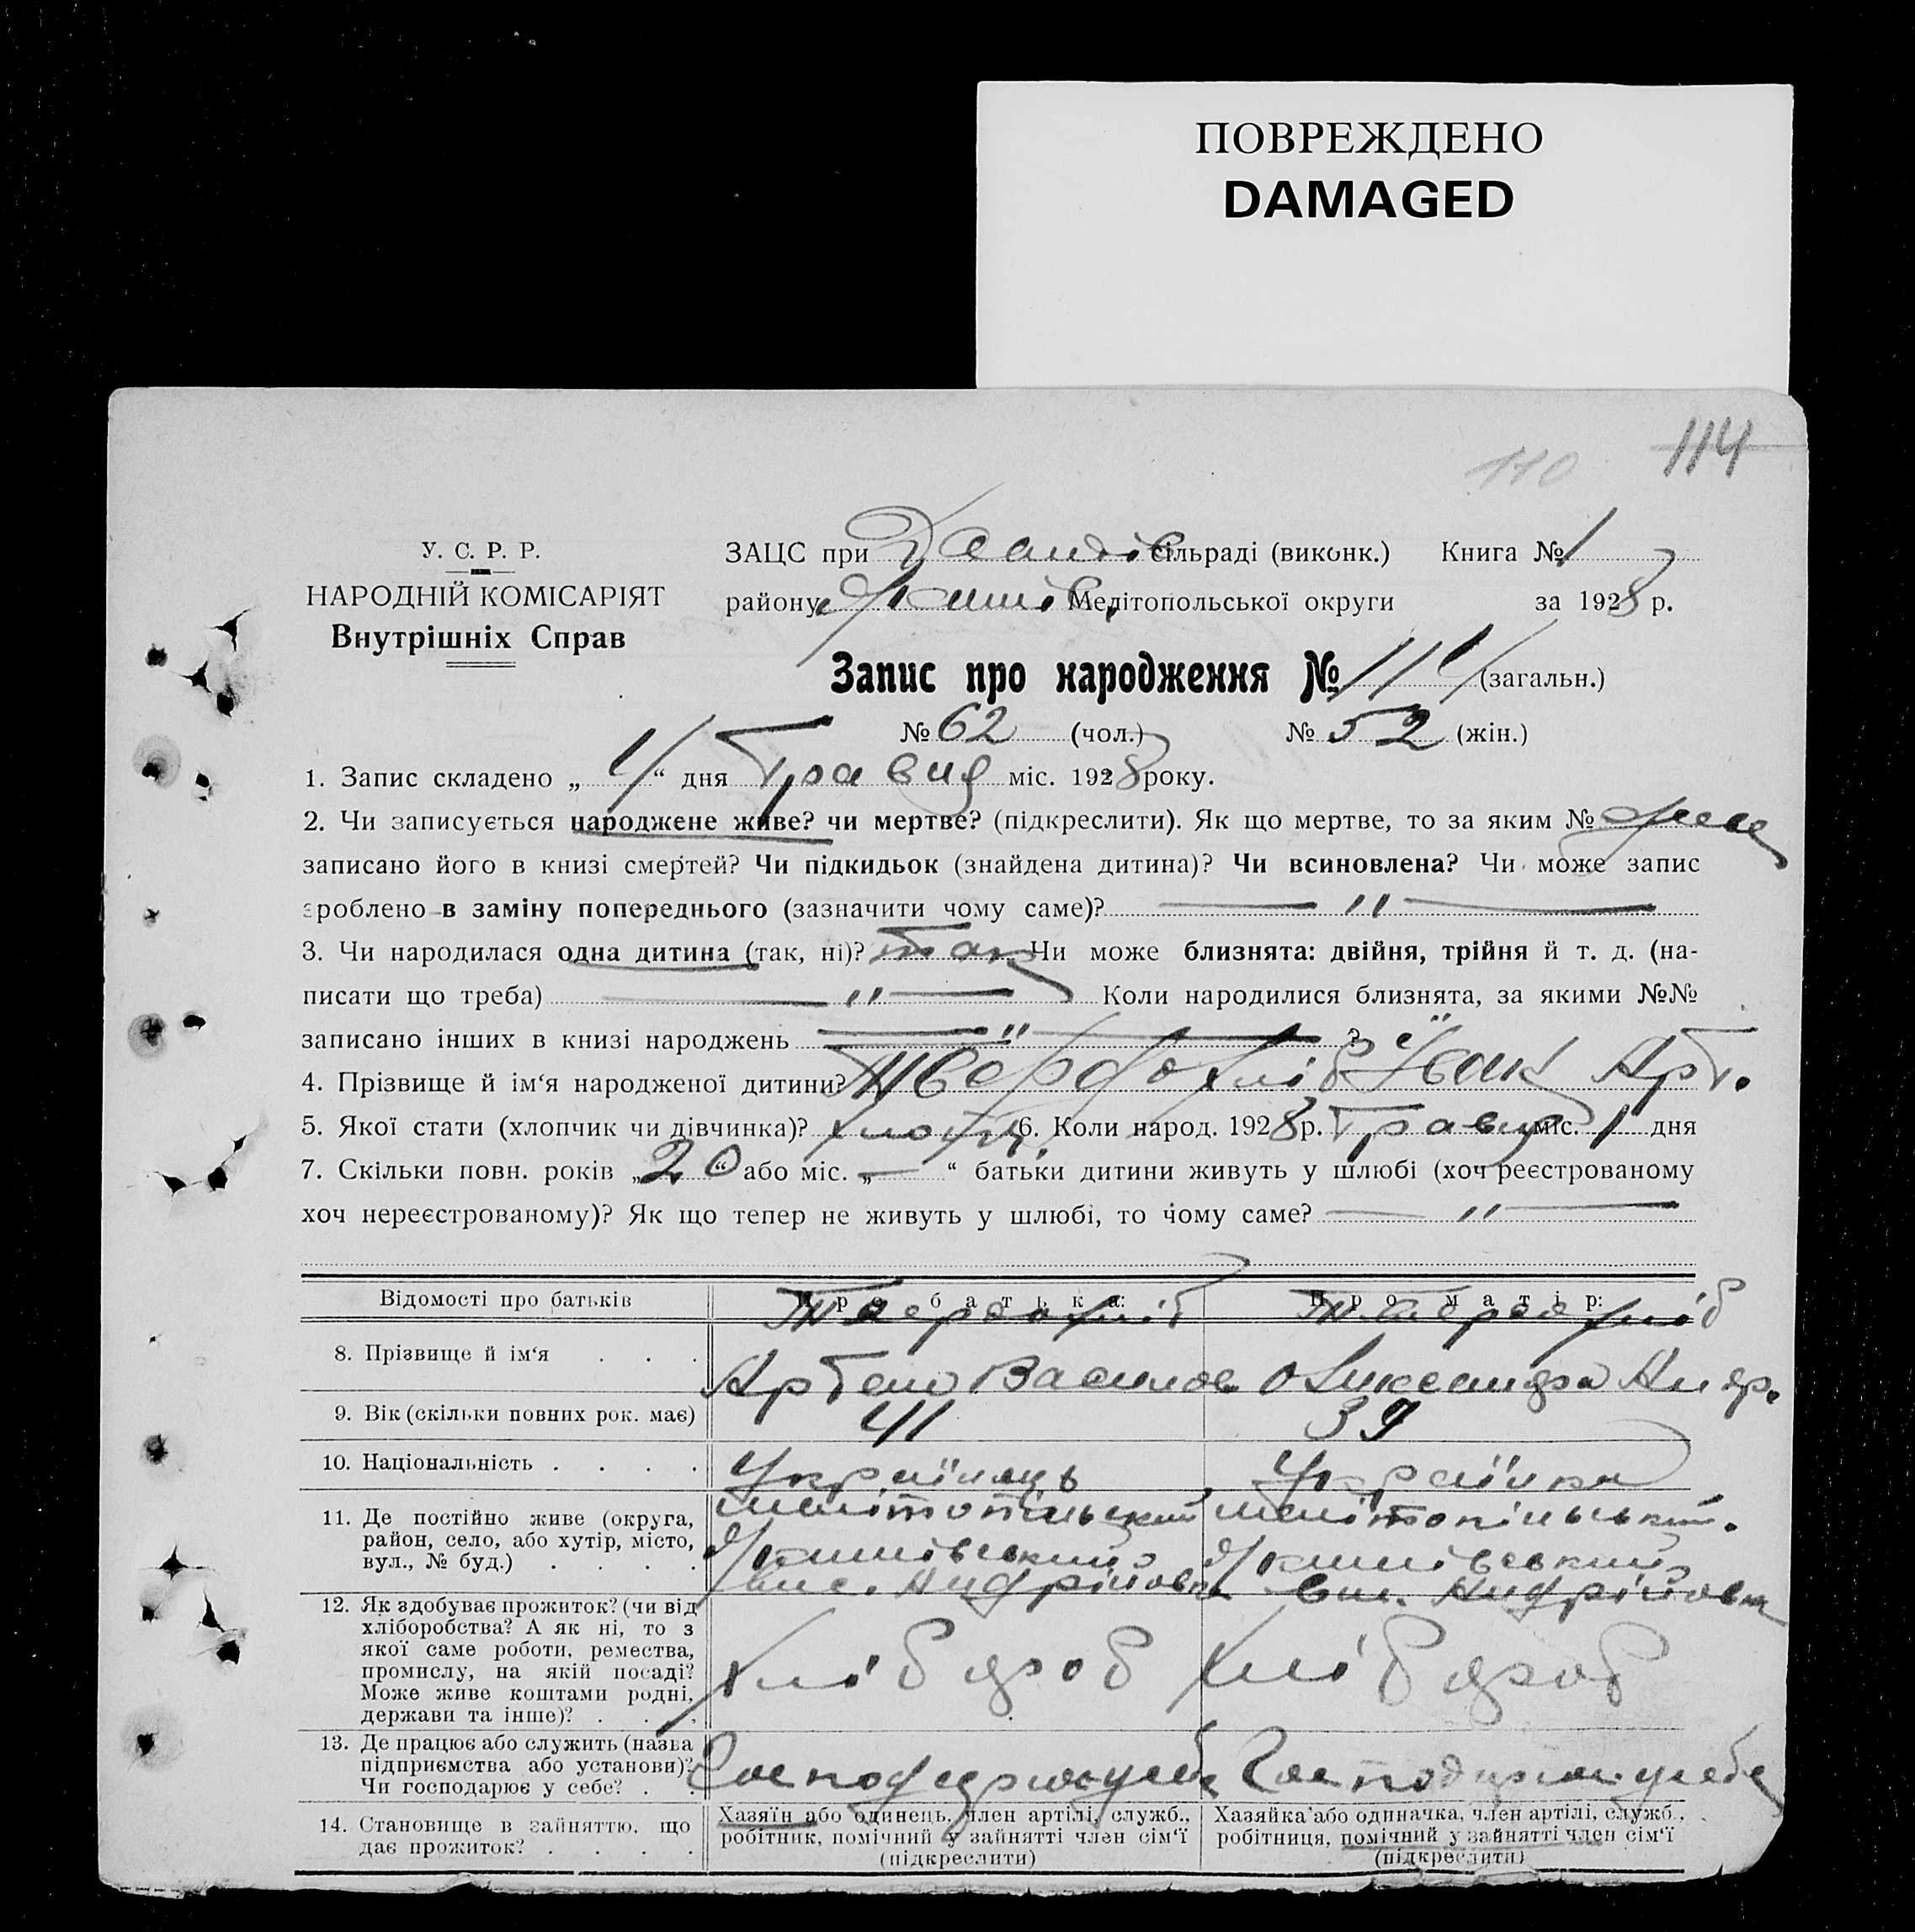 ПОВРЕЖДЕНО
DAMAGED
110 114
У. С. Р. Р.
НАРОДНІЙ КОМІСАРІЯТ
Внутрішніх Справ
ЗАЦС при сільраді (виконк.) Книга № 1
району Мелітопольської округи за 1928 р.
Запис про народження № 114 (загальн.)
№ 62 (чол.) № 52 (жін.)
1. Запис складено „ 4 “ дня Травня міс. 1928 року.
2. Чи записується народжене живе? чи мертве? (підкреслити). Як що мертве, то за яким №
записано його в книзі смертей? Чи підкидьок (знайдена дитина)? Чи всиновлена? Чи може запис
зроблено в заміну попереднього (зазначити чому саме)? — " —
3. Чи народилася одна дитина (так, ні)? так Чи може близнята: двійня, трійня й т. д. (на-
писати що треба) — " — Коли народилися близнята, за якими №№
записано інших в книзі народжень — " — ?
4. Прізвище й ім‘я народженої дитини? Твердохліб Іван Арт.
5. Якої стати (хлопчик чи дівчинка)? хлопч. 6. Коли народ. 1928 р. Травня міс. 1 дня
7. Скільки повн. років „ 20 “ або міс. „ — “ батьки дитини живуть у шлюбі (хоч реєстрованому
хоч нереєстрованому)? Як що тепер не живуть у шлюбі, то чому саме? — " —
Відомості про батьків Про батька: Про матір:
Твердохліб Твердохліб
8. Прізвище й ім‘я . . . Артем Василов. Олександра Андр.
9. Вік (скільки повних рок. має) 41 39
10. Національність . . . . Українець Українка
11. Де постійно живе (округа,
район, село, або хутір, місто,
вул., № буд.) . . . .
Мелітопільський Мелітопільський.
Якимівський Якимівський
вис. Андрійовка вис. Андрійовка
12. Як здобуває прожиток? (чи від
хліборобства? А як ні, то з
якої саме роботи, ремества,
промислу, на якій посаді?
Може живе коштами родні,
держави та інше)? . . .
Хлібороб Хлібороб
13. Де працює або служить (назва
підприємства або установи)?
Чи господарює у себе? . .
Господарює у себе Господарює у себе
14. Становище в зайняттю, що
дає прожиток? . . . .
Хазяїн або одинець, член артілі, служб.,
робітник, помічний у зайнятті член сім‘ї
(підкреслити)
Хазяйка або одиначка, член артілі, служб.,
робітниця, помічний у зайнятті член сім‘ї
(підкреслити)